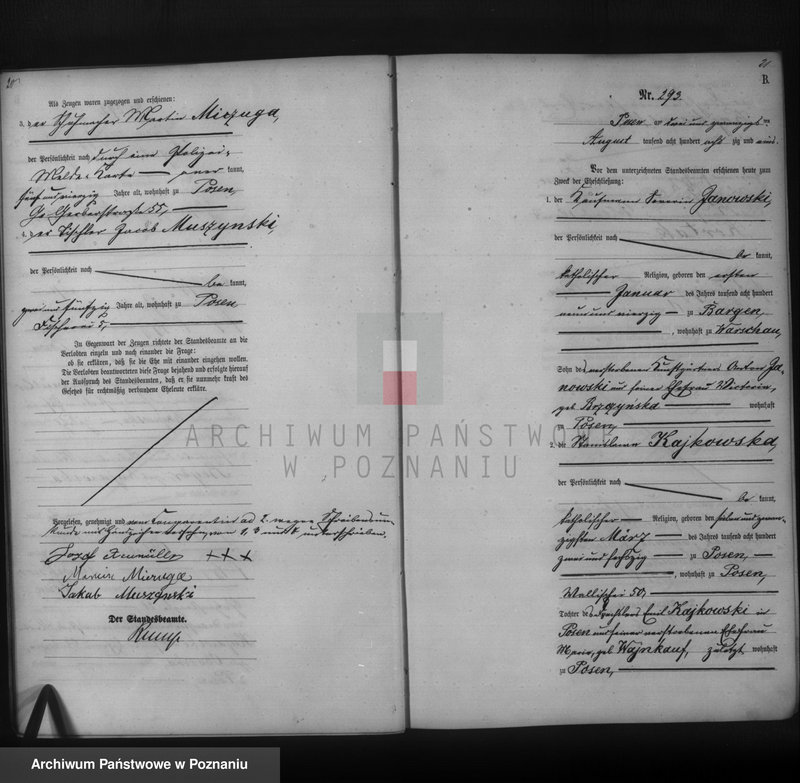 20
Als Zeugen waren zugezogen und erschienen:
3. der Schuhmacher Martin Miczuga,
der Persönlichkeit nach durch eine Polizei-
Melde-Karte — aner kannt,
fünf und vierzig Jahre alt, wohnhaft zu Posen,
Gr. Gerberstraße 55,
4. der Tischler Jacob Muszynski,
der Persönlichkeit nach
be kannt,
zwei und fünfzig Jahre alt, wohnhaft zu Posen
Fischerei 5,
In Gegenwart der Zeugen richtete der Standesbeamte an die
Verlobten einzeln und nach einander die Frage:
ob sie erklären, daß sie die Ehe mit einander eingehen wollen.
Die Verlobten beantworteten diese Frage bejahend und erfolgte hierauf
der Ausspruch des Standesbeamten, daß er sie nunmehr kraft des
Gesetzes für rechtmäßig verbundene Eheleute erkläre.
Vorgelesen, genehmigt und von Comparentin ad 2 wegen Schreibensun-
kunde mit Handzeichen versehen, von 1, 3 und 4 unterschrieben.
Jozef +++
Marcin Miczuga
Jakób Muszynski
Der Standesbeamte.
Rump
21
B.
Nr. 293.
Posen am zwei und zwanzigsten
August tausend acht hundert acht zig und eins.
Vor dem unterzeichneten Standesbeamten erschienen heute zum
Zweck der Eheschließung:
1. der Kaufmann Severin Janowski,
der Persönlichkeit nach
be kannt,
katholischer Religion, geboren den ersten
Januar des Jahres tausend acht hundert
neun und vierzig — zu Bargen
, wohnhaft zu Warschau,
Sohn des verstorbenen Kunstgärtners Anton Ja-
nowski und seiner Ehefrau Victoria,
geb. Brzczyńska wohnhaft
zu Posen,
2. die Stanislawa Kajkowska,
der Persönlichkeit nach
be kannt,
katholischer — Religion, geboren den sieben und zwan-
zigsten März — des Jahres tausend acht hundert
zwei und sechszig — zu Posen,
, wohnhaft zu Posen,
Wallischei 50,
Tochter des Emil Kajkowski in
Posen und seiner verstorbenen Ehefrau
Maria, geb. Wajnkauf, zuletzt wohnhaft
zu Posen,
ARCHIWUM PAŃSTWOWE
W POZNANIU
Archiwum Państwowe w Poznaniu